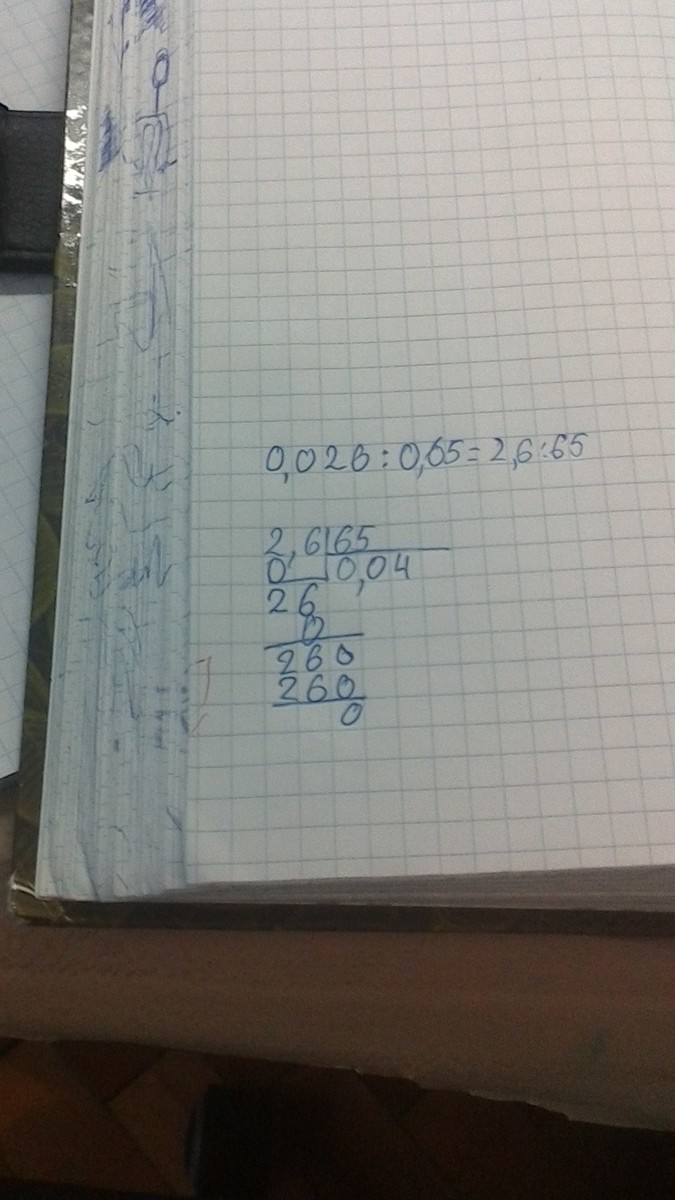 0,026 : 0,65 = 2,6 : 65
2,6 | 65
0 | 0,04
26
0
260
260
0